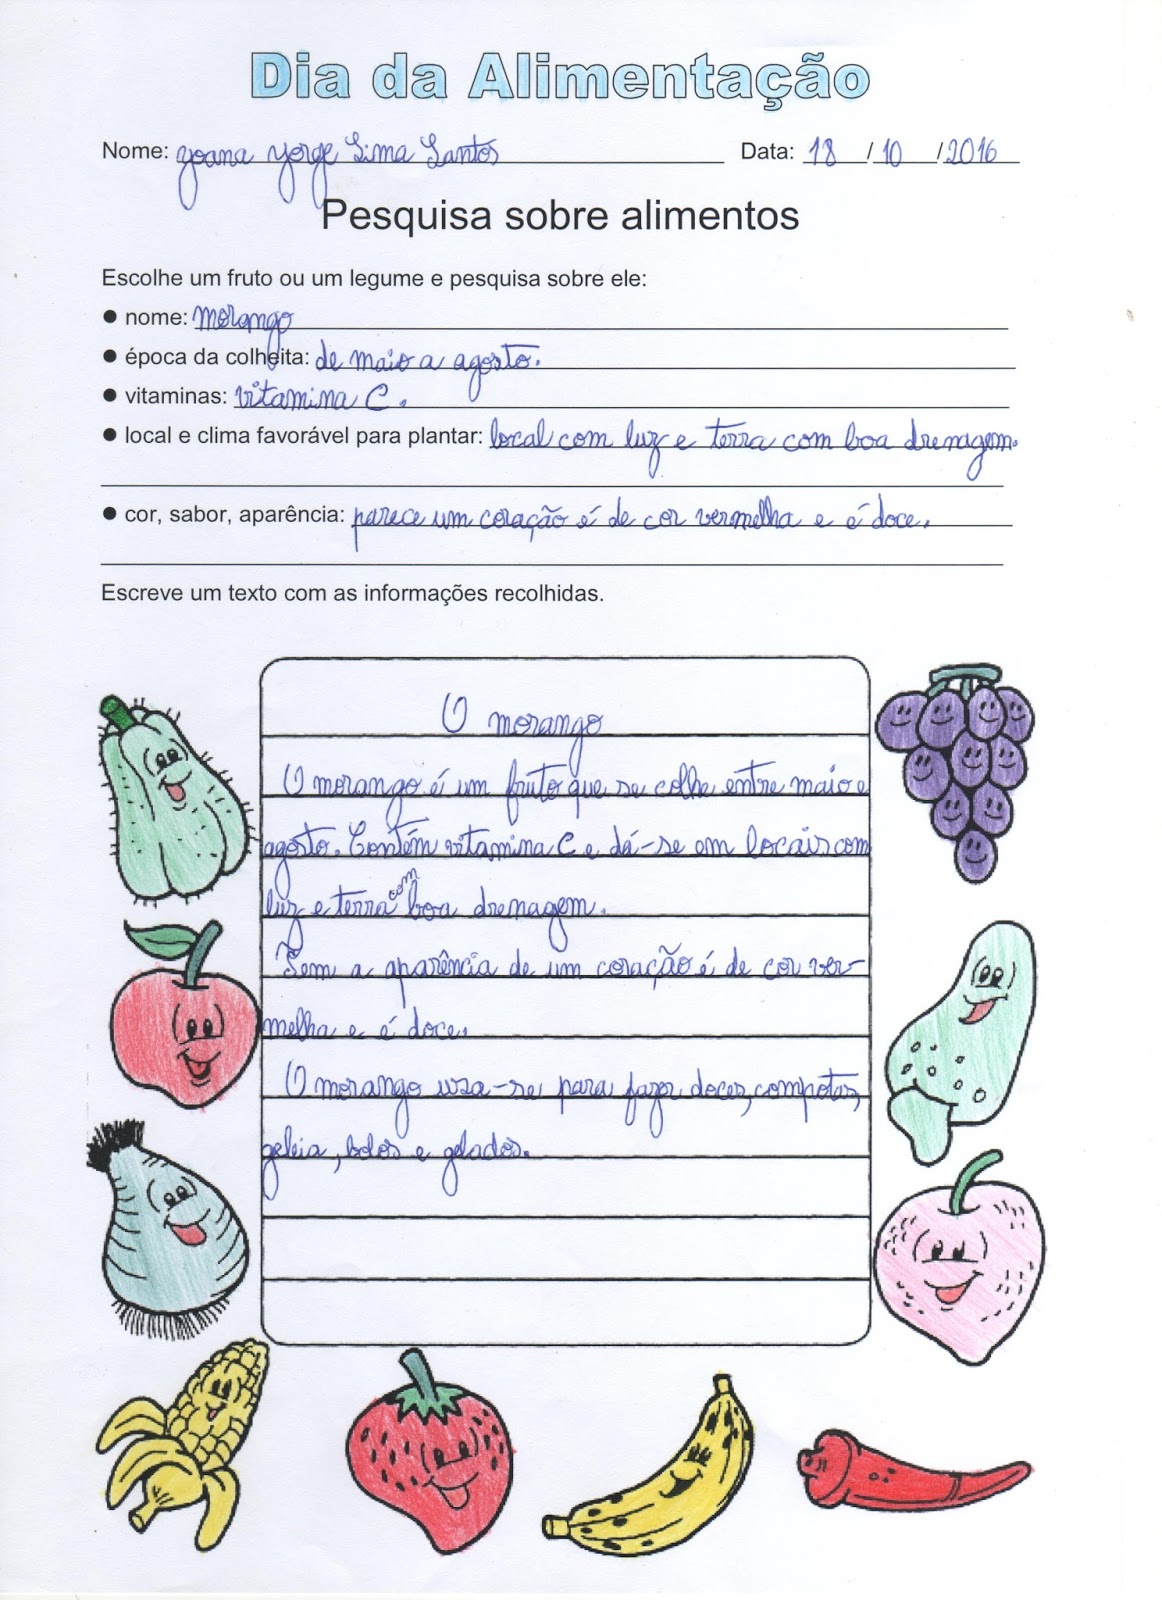 Dia da Alimentação
Nome: Joana Jorge Lima Santos Data: 18 / 10 / 2016
Pesquisa sobre alimentos
Escolhe um fruto ou um legume e pesquisa sobre ele:
● nome: morango
● época da colheita: de maio a agosto.
● vitaminas: vitamina C.
● local e clima favorável para plantar: local com luz e terra com boa drenagem.
● cor, sabor, aparência: parece um coração é de cor vermelha e é doce.
Escreve um texto com as informações recolhidas.
O morango
O morango é um fruto que se colhe entre maio e
agosto. Contém vitamina C e dá-se em locais com
luz e terra com boa drenagem.
Tem a aparência de um coração é de cor ver-
melha e é doce.
O morango usa-se para fazer doces, compotas,
geleia, bolos e gelados.